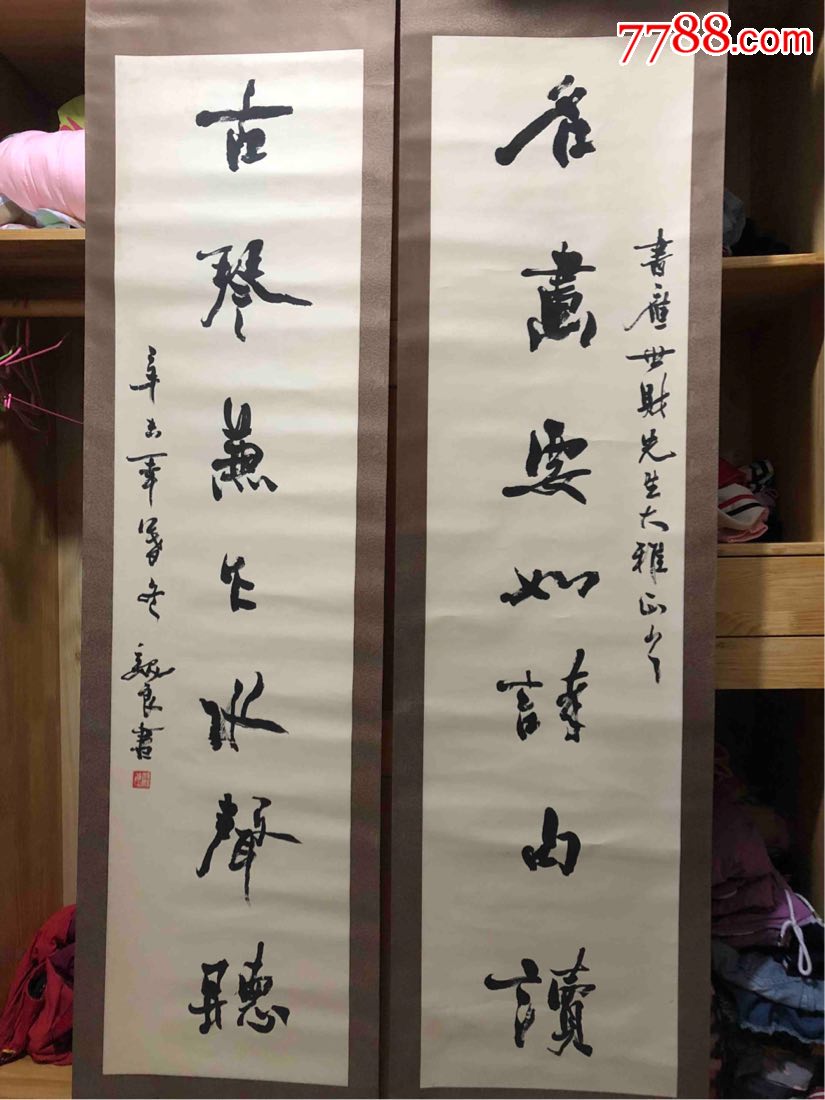 7788.com
書應世財先生大雅正
名畫要如詩句讀
古琴兼作水聲聽
辛未年冬
良書